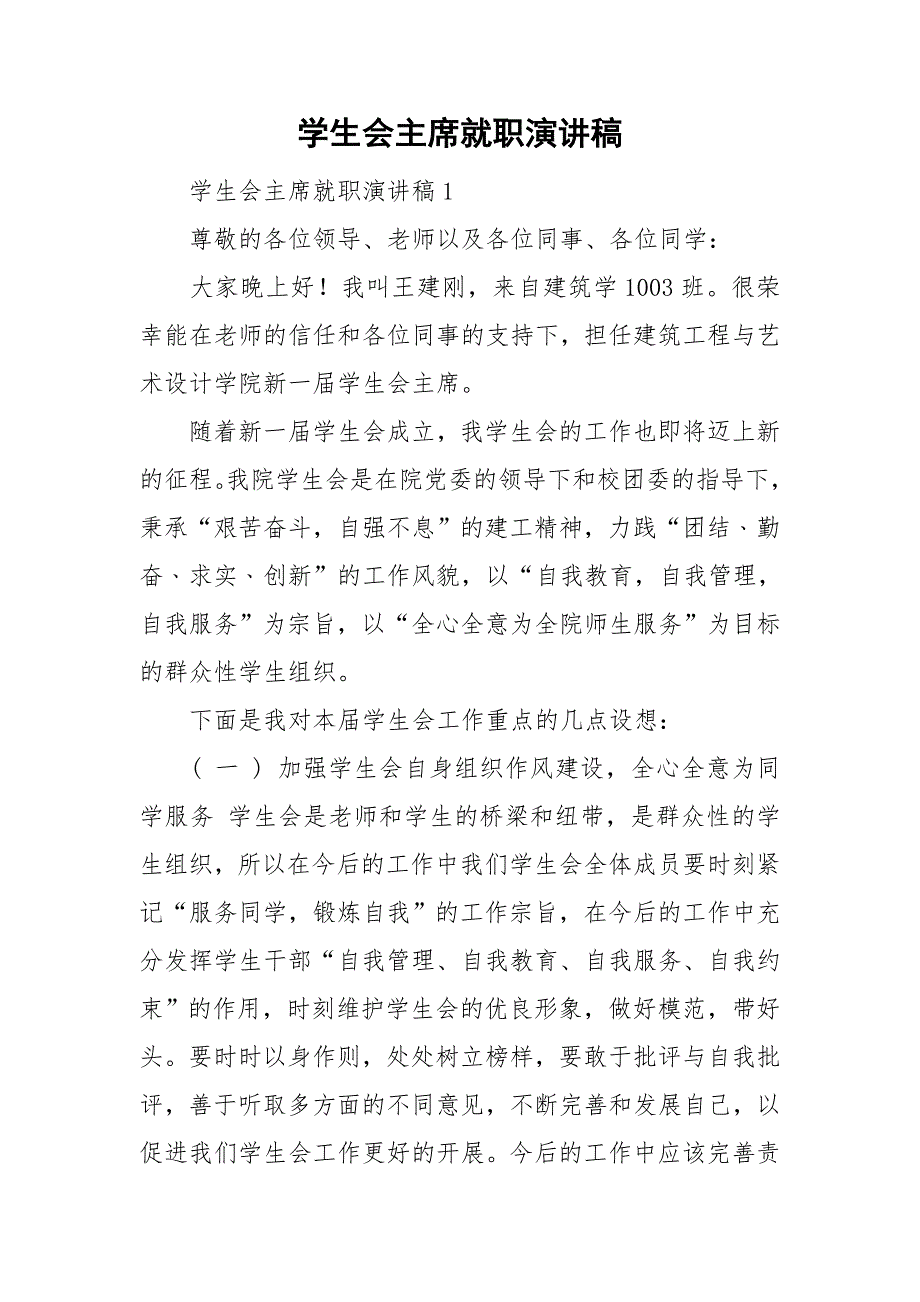 学生会主席就职演讲稿
学生会主席就职演讲稿1
尊敬的各位领导、老师以及各位同事、各位同学：
大家晚上好！我叫王建刚，来自建筑学1003班。很荣
幸能在老师的信任和各位同事的支持下，担任建筑工程与艺
术设计学院新一届学生会主席。
随着新一届学生会成立，我学生会的工作也即将迈上新
的征程。我院学生会是在院党委的领导下和校团委的指导下，
秉承“艰苦奋斗，自强不息”的建工精神，力践“团结、勤
奋、求实、创新”的工作风貌，以“自我教育，自我管理，
自我服务”为宗旨，以“全心全意为全院师生服务”为目标
的群众性学生组织。
下面是我对本届学生会工作重点的几点设想：
( 一 ) 加强学生会自身组织作风建设，全心全意为同
学服务 学生会是老师和学生的桥梁和纽带，是群众性的学
生组织，所以在今后的工作中我们学生会全体成员要时刻紧
记“服务同学，锻炼自我”的工作宗旨，在今后的工作中充
分发挥学生干部“自我管理、自我教育、自我服务、自我约
束”的作用，时刻维护学生会的优良形象，做好模范，带好
头。要时时以身作则，处处树立榜样，要敢于批评与自我批
评，善于听取多方面的不同意见，不断完善和发展自己，以
促进我们学生会工作更好的开展。今后的工作中应该完善责